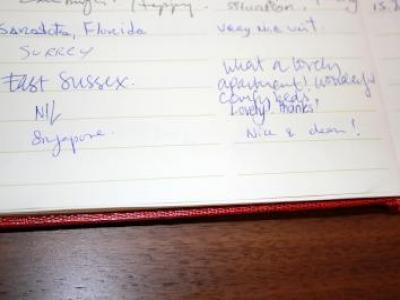 Happy
Sarasota, Florida
very nice visit.
SURREY
East Sussex.
What a lovely
apartment! Wonderful
comfy beds
NIL
Lovely! Thanks!
Singapore.
Nice & clean!